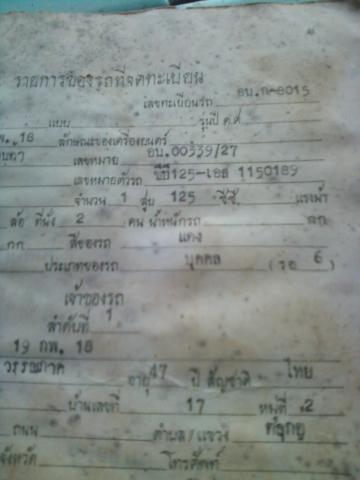 รายการของรถที่จดทะเบียน
เลขทะเบียนรถ อบ.ก-8015
แบบ รุ่นปี ค.ศ
พ. 18 ลักษณะของเครื่องยนต์
เลขหมาย อบ.00339/27
เลขหมายตัวรถ บีบี125-เอส 1150189
จำนวน 1 สูบ 125 ซีซี. แรงม้า
ล้อ ที่นั่ง 2 คน น้ำหนักรถ กก
กก สีของรถ แดง
ประเภทของรถ บุคคล (รย 6)
เจ้าของรถ
ลำดับที่ 1
19 กพ. 18
อายุ 47 ปี สัญชาติ ไทย
บ้านเลขที่ 17 หมู่ที่ 2
ถนน ตำบล/แขวง
จังหวัด โทรศัพท์